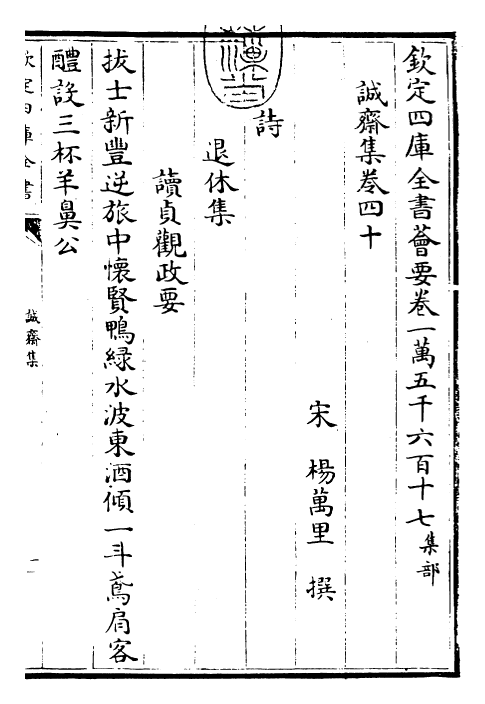 欽定四庫全書薈要卷一萬五千六百十七集部
誠齋集卷四十
宋 楊萬里 撰
詩
退休集
讀貞觀政要
拔士新豐逆旅中懷賢鴨緑水波東酒傾一斗鳶肩客
醴設三杯羊鼻公
欽定四庫全書
誠齋集
一